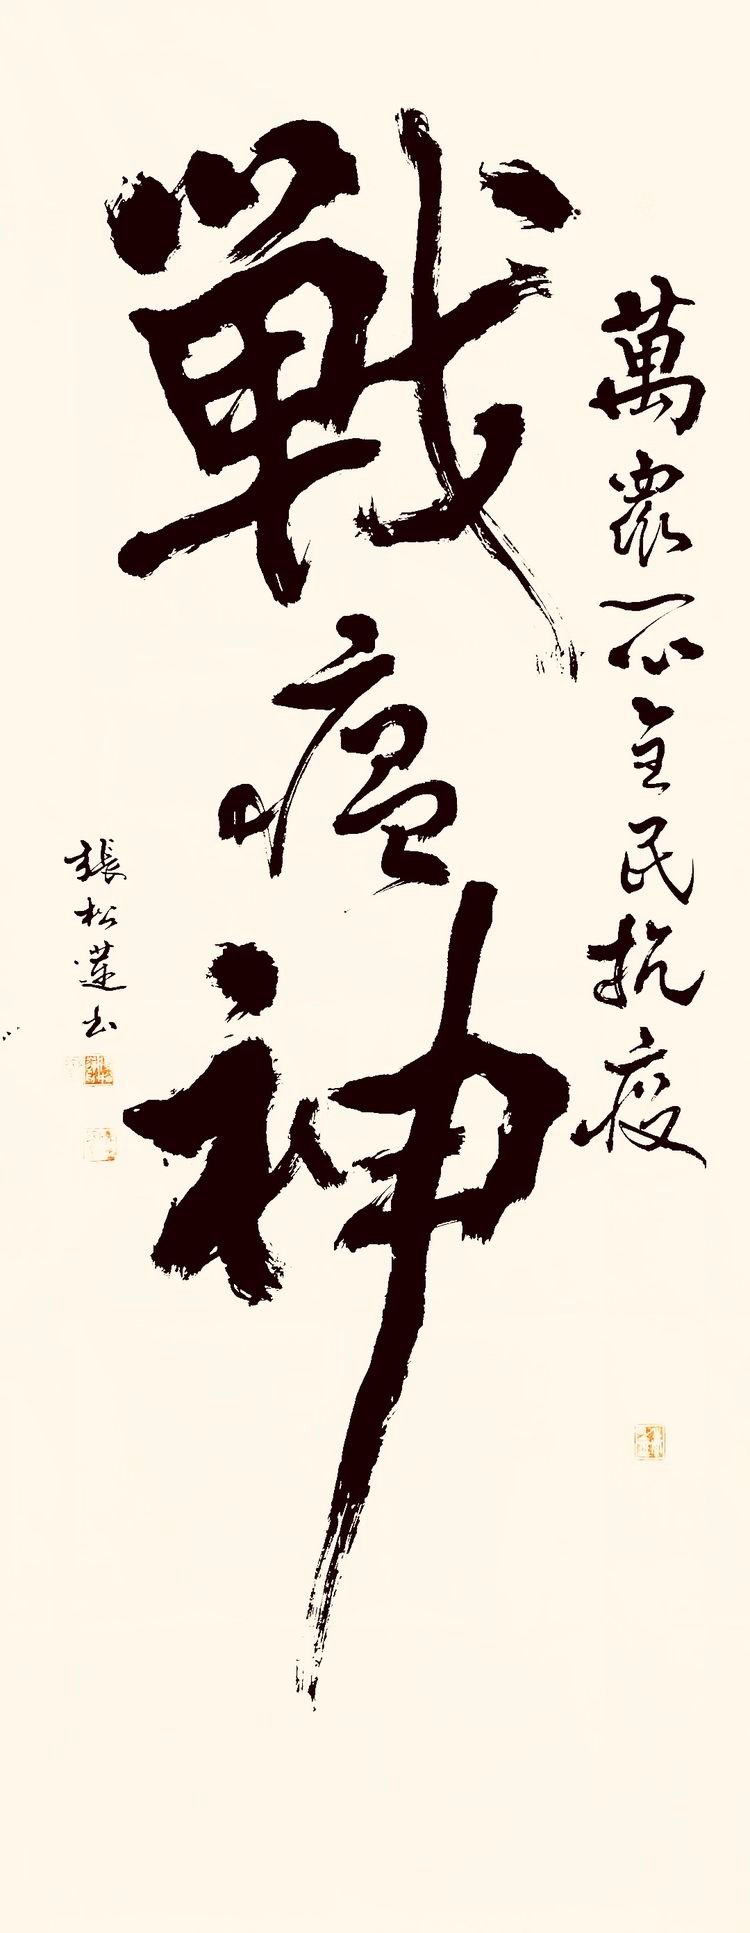 萬衆一心全民抗疫
戦瘟神
張松蓮书